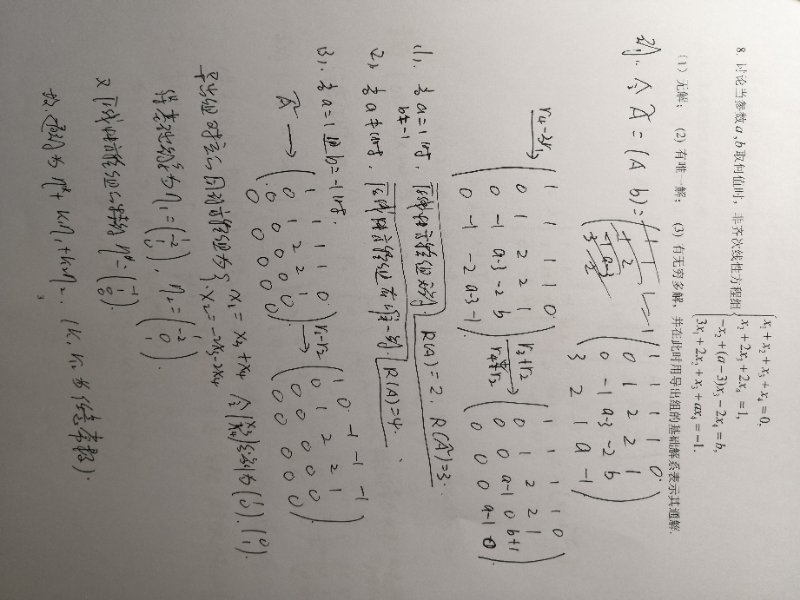 8. 讨论当参数a,b取何值时，非齐次线性方程组
x₁+x₂+x₃+x₄=0,
x₂+2x₃+2x₄=1,
-x₂+(a-3)x₃-2x₄=b,
3x₁+2x₂+x₃+ax₄=-1.
(1) 无解； (2) 有唯一解； (3) 有无穷多解，并在此时用导出组的基础解系表示其通解.
解. 令 Ã=(A b)=
1 1 1 1 0
0 1 2 2 1
0 -1 a-3 -2 b
3 2 1 a -1
r₄-3r₁
1 1 1 1 0
0 1 2 2 1
0 -1 a-3 -2 b
0 -1 -2 a-3 -1
r₃+r₂
r₄+r₂
1 1 1 1 0
0 1 2 2 1
0 0 a-1 0 b+1
0 0 0 a-1 0
(1). 当a=1时, 原线性方程组无解. R(A)=2, R(Ã)=3.
b≠-1
(2). 当a≠1时, 原线性方程组有唯一解. R(A)=4.
(3). 当a=1且b=-1时.
Ã →
1 1 1 1 0
0 1 2 2 1
0 0 0 0 0
0 0 0 0 0
r₁-r₂
1 0 -1 -1 -1
0 1 2 2 1
0 0 0 0 0
0 0 0 0 0
导出组对应的同解方程组为 x₁=x₃+x₄ 令(x₃ x₄)分别为(1 0),(0 1).
x₂=-2x₃-2x₄
得基础解系为 η₁=(1 -2 1 0), η₂=(1 -2 0 1).
又原线性方程组的特解 η*=(-1 1 0 0).
故通解为 η*+k₁η₁+k₂η₂. (k₁, k₂为任意常数).
3